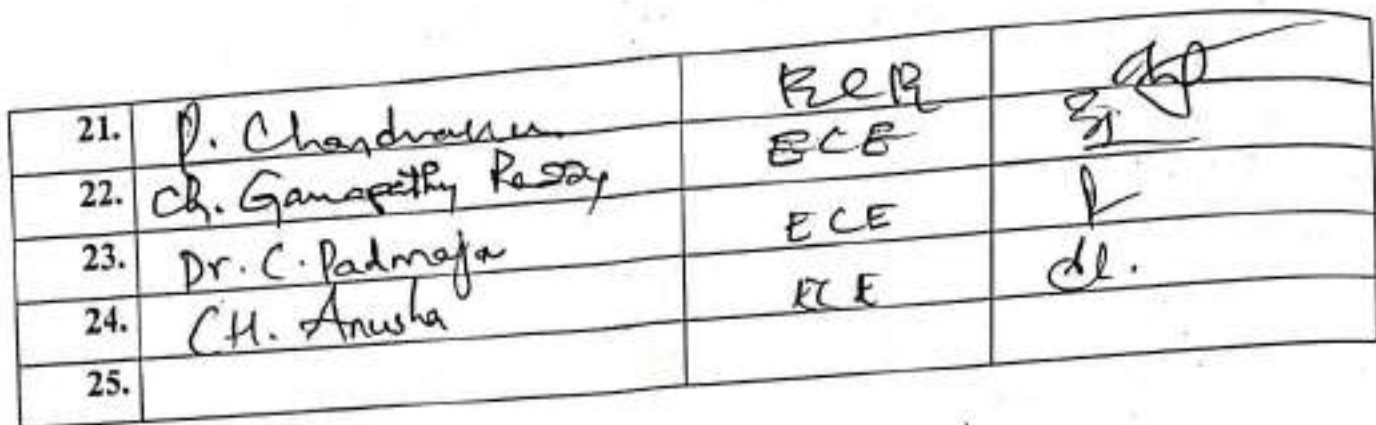 21. P. ECE
22. Ch. Ganapathy Reddy ECE
23. Dr. C. Padmaja ECE
24. CH. Anusha ECE
25.